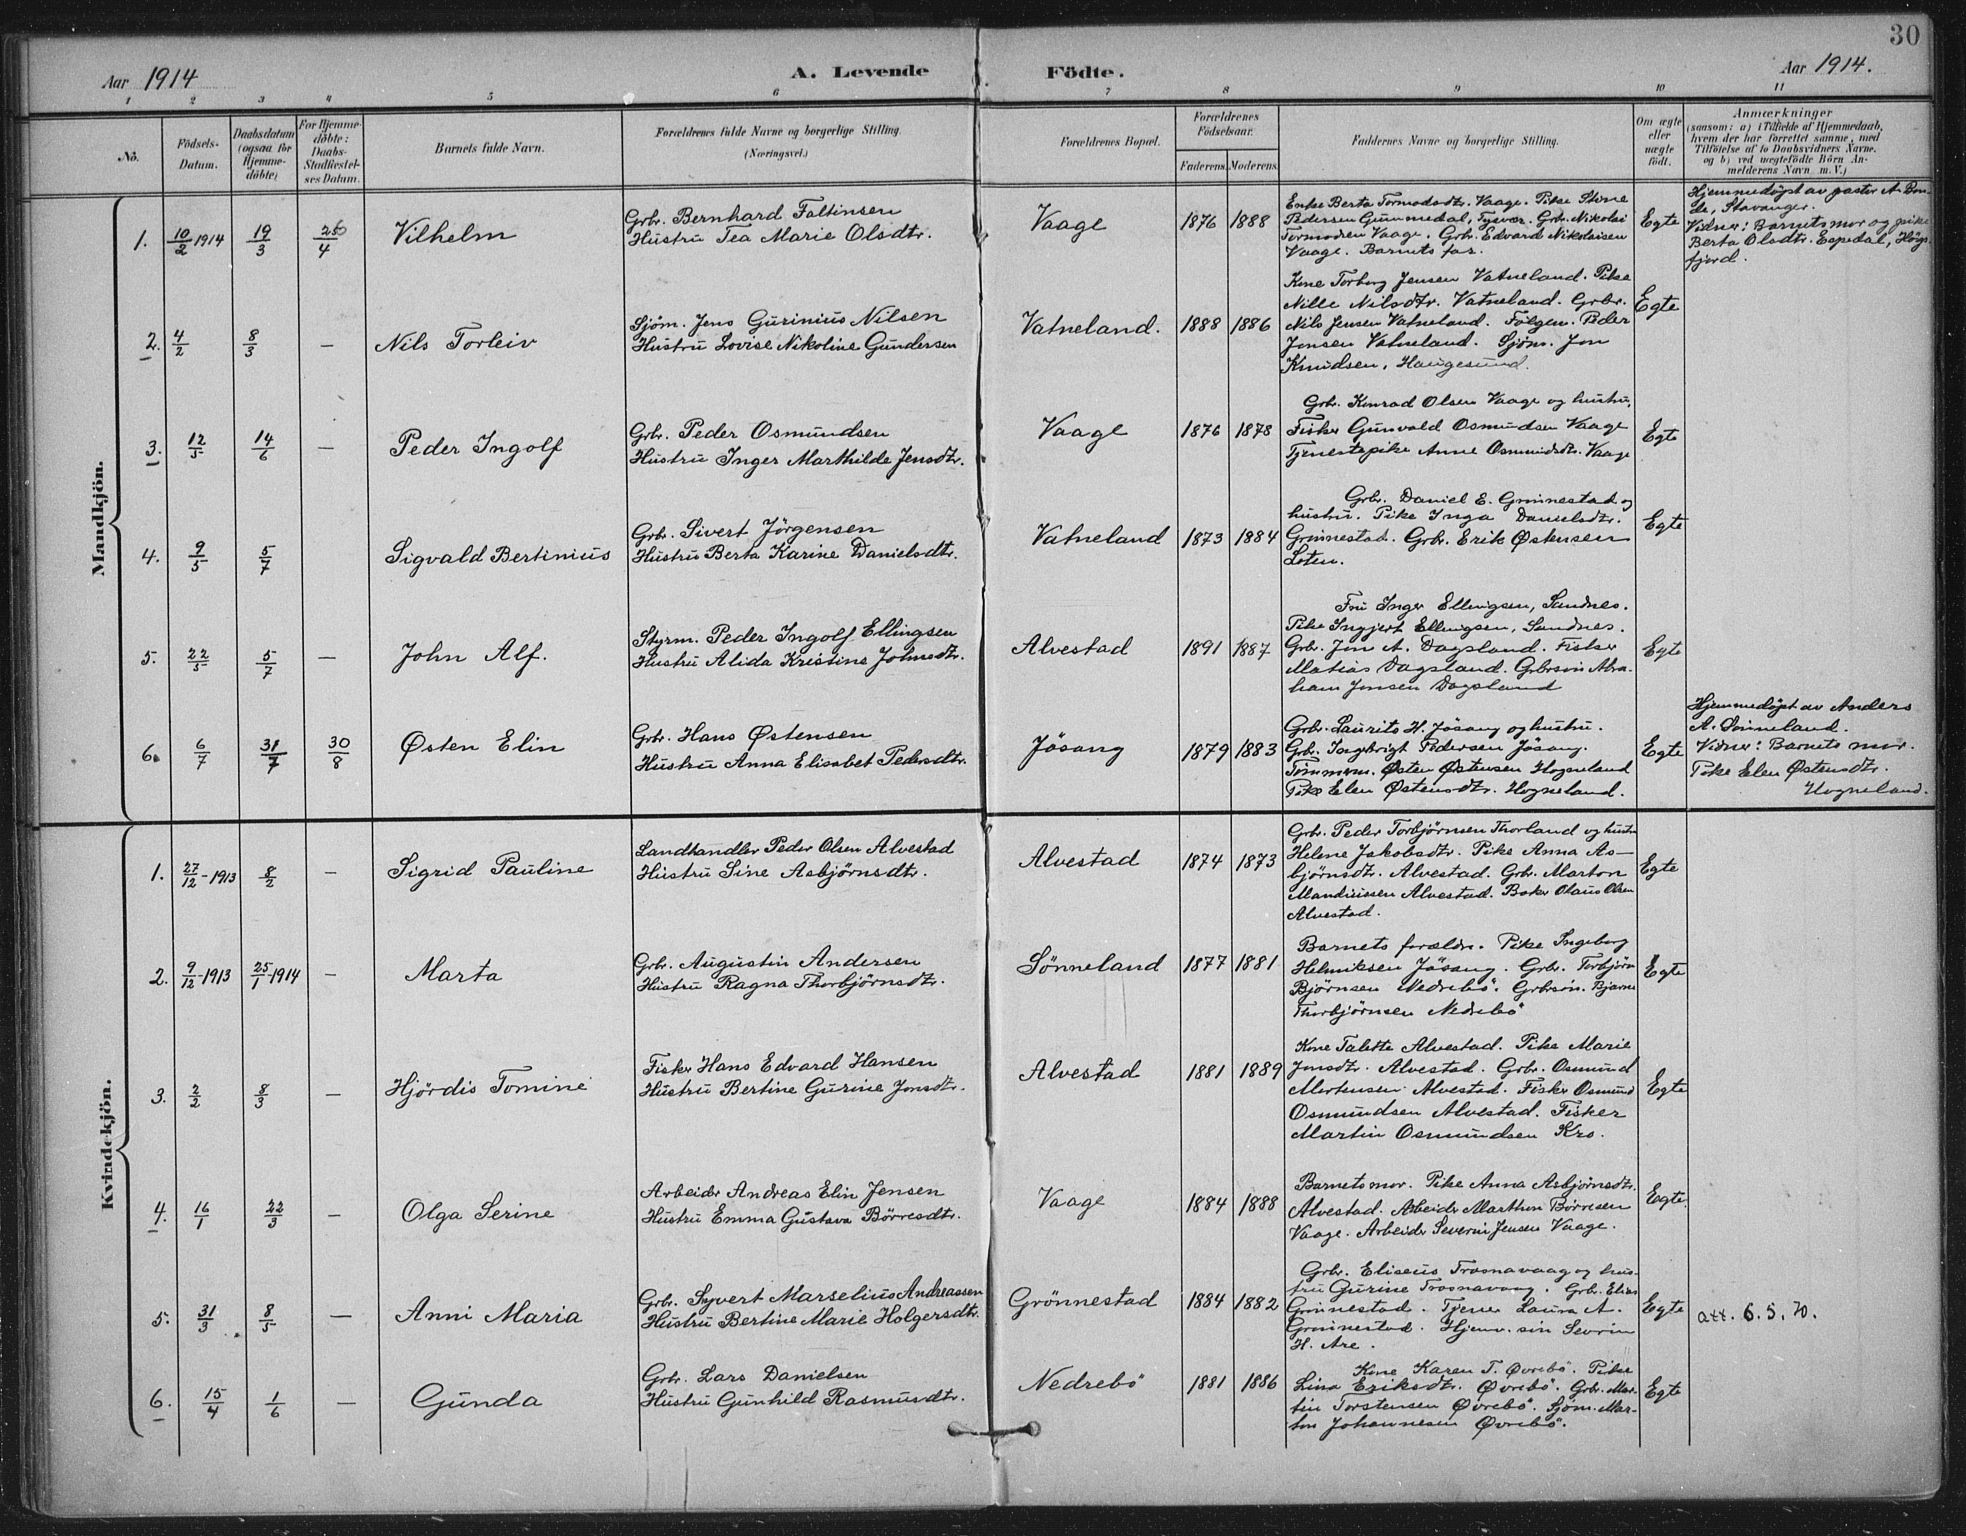 30
Aar 1914
A. Levende Födte.
Aar 1914.
1 2 3 4 5 6 7 8 9 10 11
No.
Födsels-
Datum.
Daabsdatum
(ogsaa for
Hjemme-
döbte)
For Hjemme-
döbte:
Daabs-
Stadfæstel-
ses Datum.
Barnets fulde Navn.
Forældrenes fulde Navne og borgerlige Stilling.
(Næringsvei.)
Forældrenes Bopæl.
Forældrenes
Födselsaar.
Faderens. Moderens.
Faddernes Navne og borgerlige Stilling.
Om ægte
eller
uægte
født.
Anmærkninger
(saasom: a) i Tilfælde af Hjemmedaab,
hvem der har forrettet samme, med
Tilföielse af to Daabsvidners Navne.
og b) ved uægtefödte Börn An-
melderens Navn m. V.)
Mandkjön.
1. 10/2 1914 19/3 26/4 Vilhelm
Grbr. Bernhard Faltinsen
Hustru Tea Marie Olsdtr.
Vaage 1876 1888
Enke Berta Tormodsdtr. Vaage. Pike Stine
Pedersen Gunmedal, Tysvær. Grbr. Nikolai
Tormodsen Vaage. Grbr. Edvard Nikolaisen
Vaage. Barnets far.
Egte
Hjemmedøpt av pastor A. Bon-
de, Stavanger.
Vidner: Barnets mor og pike
Berta Olsdtr. Espedal, Høgs-
fjord.
2. 4/2 8/3 — Nils Torleiv
Sjöm. Jens Gurinius Nilsen
Hustru Lovise Nikoline Gundersen
Vatneland. 1888 1886
Kone Torborg Jensen Vatneland. Pike
Nille Nilsdtr. Vatneland. Grbr.
Nils Jensen Vatneland. Følgem. Peder
Jensen Vatneland. Sjöm. Jon
Knudsen, Haugesund.
Egte
3. 12/5 14/6 — Peder Ingolf
Grbr. Peder Osmundsen
Hustru Inger Marthilde Jensdtr.
Vaage 1876 1878
Grbr. Konrad Olsen Vaage og hustru,
Fisker Gunvald Osmundsen Vaage
Tjenestepike Anne Osmundsdtr. Vaage
Egte
4. 9/5 5/7 Sigvald Bertinius
Grbr. Sivert Jörgensen
Hustru Berta Karine Danielsdtr.
Vatneland 1873 1884
Grbr. Daniel E. Grönnestad og
hustru. Pike Inga Danielsdtr.
Grönnestad. Grbr. Erik Østensen
Loten.
Egte
5. 22/5 5/7 — John Alf.
Styrm. Peder Ingolf Ellingsen
Hustru Alida Kristine Johnsdtr.
Alvestad 1891 1887
Fru Inger Ellingsen, Sandnes.
Pike Ingjert Ellingsen, Sandnes.
Grbr. Jon A. Dagsland. Fisker
Matias Dagsland. Grbrsön Abra-
ham Jonsen Dagsland
Egte
6. 6/7 31/7 30/8 Østen Elin
Grbr. Hans Østensen
Hustru Anna Elisabet Pedersdtr.
Jösang 1879 1883
Grbr. Laurits H. Jösang og hustru.
Grb. Ingebrigt Pedersen Jösang.
Tömmerm. Østen Østensen Hogneland
Pike Elen Østensdtr. Hogneland.
Egte
Hjemmedøpt av Anders
A. Sönneland.
Vidner: Barnets mor.
Pike Elen Østensdtr.
Hogneland.
Kvindekjön.
1. 27/12-1913 8/2 — Sigrid Pauline
Landhandler Peder Olsen Alvestad
Hustru Sine Asbjørnsdtr.
Alvestad 1874 1873
Grbr. Peder Torbjörnsen Thorland og hustr
Helene Jakobsdtr. Pike Anna As-
björnsdtr. Alvestad. Grbr. Marton
Mandiussen Alvestad. Baker Olaus Olsen
Alvestad.
Egte
2. 9/12-1913 25/1-1914 — Marta
Grbr. Augustin Andersen
Hustru Ragna Thorbjörnsdtr.
Sønneland 1877 1881
Barnets forældre. Pike Ingeborg
Helmiksen Jösang. Grbr. Torbjörn
Björnsen Nedrebö. Grbrsön. Bjarne
Thorbjörnsen Nedrebö
Egte
3. 2/2 8/3 — Hjördis Tomine
Fisker Hans Edvard Hansen
Hustru Bertine Gurine Jonsdtr.
Alvestad 1881 1889
Kone Talette Alvestad. Pike Marie
Jonsdtr. Alvestad. Grbr. Osmund
Mortensen Alvestad. Fisker Osmund
Osmundsen Alvestad. Fisker
Martin Osmundsen Kro.
Egte
4. 16/1 22/3 — Olga Serine
Arbeider Andreas Elin Jensen
Hustru Emma Gustava Börresdtr.
Vaage 1884 1888
Barnets mor. Pike Anna Asbjörnsdtr.
Alvestad. Arbeider Marthon Börresen
Vaage. Arbeider Severin Jensen Vaage.
Egte.
5. 31/3 8/5 — Anni Maria
Grbr. Syvert Marselius Andreassen
Hustru Bertine Marie Holgersdtr.
Grönnestad 1884 1882
Grbr. Eliseus Trosnavaag og hus-
tru Gurine Trosnavaag. Grbr. Elias
Grönnestad. Tjener Laura A.
Grönnestad. Hjemv. sön Sevrin
H. Are.
Egte
att. 6.5.70.
6. 15/4 1/6 — Gunda
Grbr. Lars Danielsen
Hustru Gunhild Rasmusdtr.
Nedrebö 1881 1886
Kone Karen T. Øvrebö. Pike
Lina Eriksdtr. Øvrebö. Grbr. Mar-
tin Torstensen Øvrebö. Sjöm. Mar-
ton Johannesen Øvrebö.
Egte